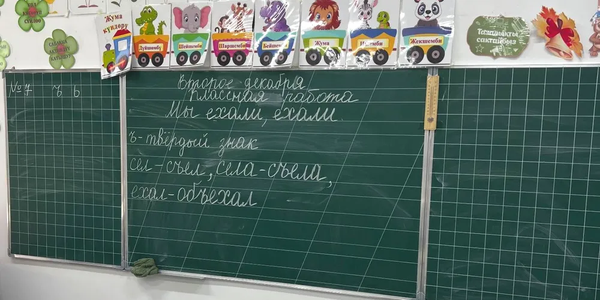 Жума
күндөрү
Дүйшөмбү
Шейшемби
Шаршемби
Жума
Ишемби
Жекшемби
Тазалыкты
сактайбыз
№7 ъ ь
Второе декабря
Классная работа
Мы ехали, ехали
ъ-твёрдый знак
сел-съел, села-съела,
ехал-объехал